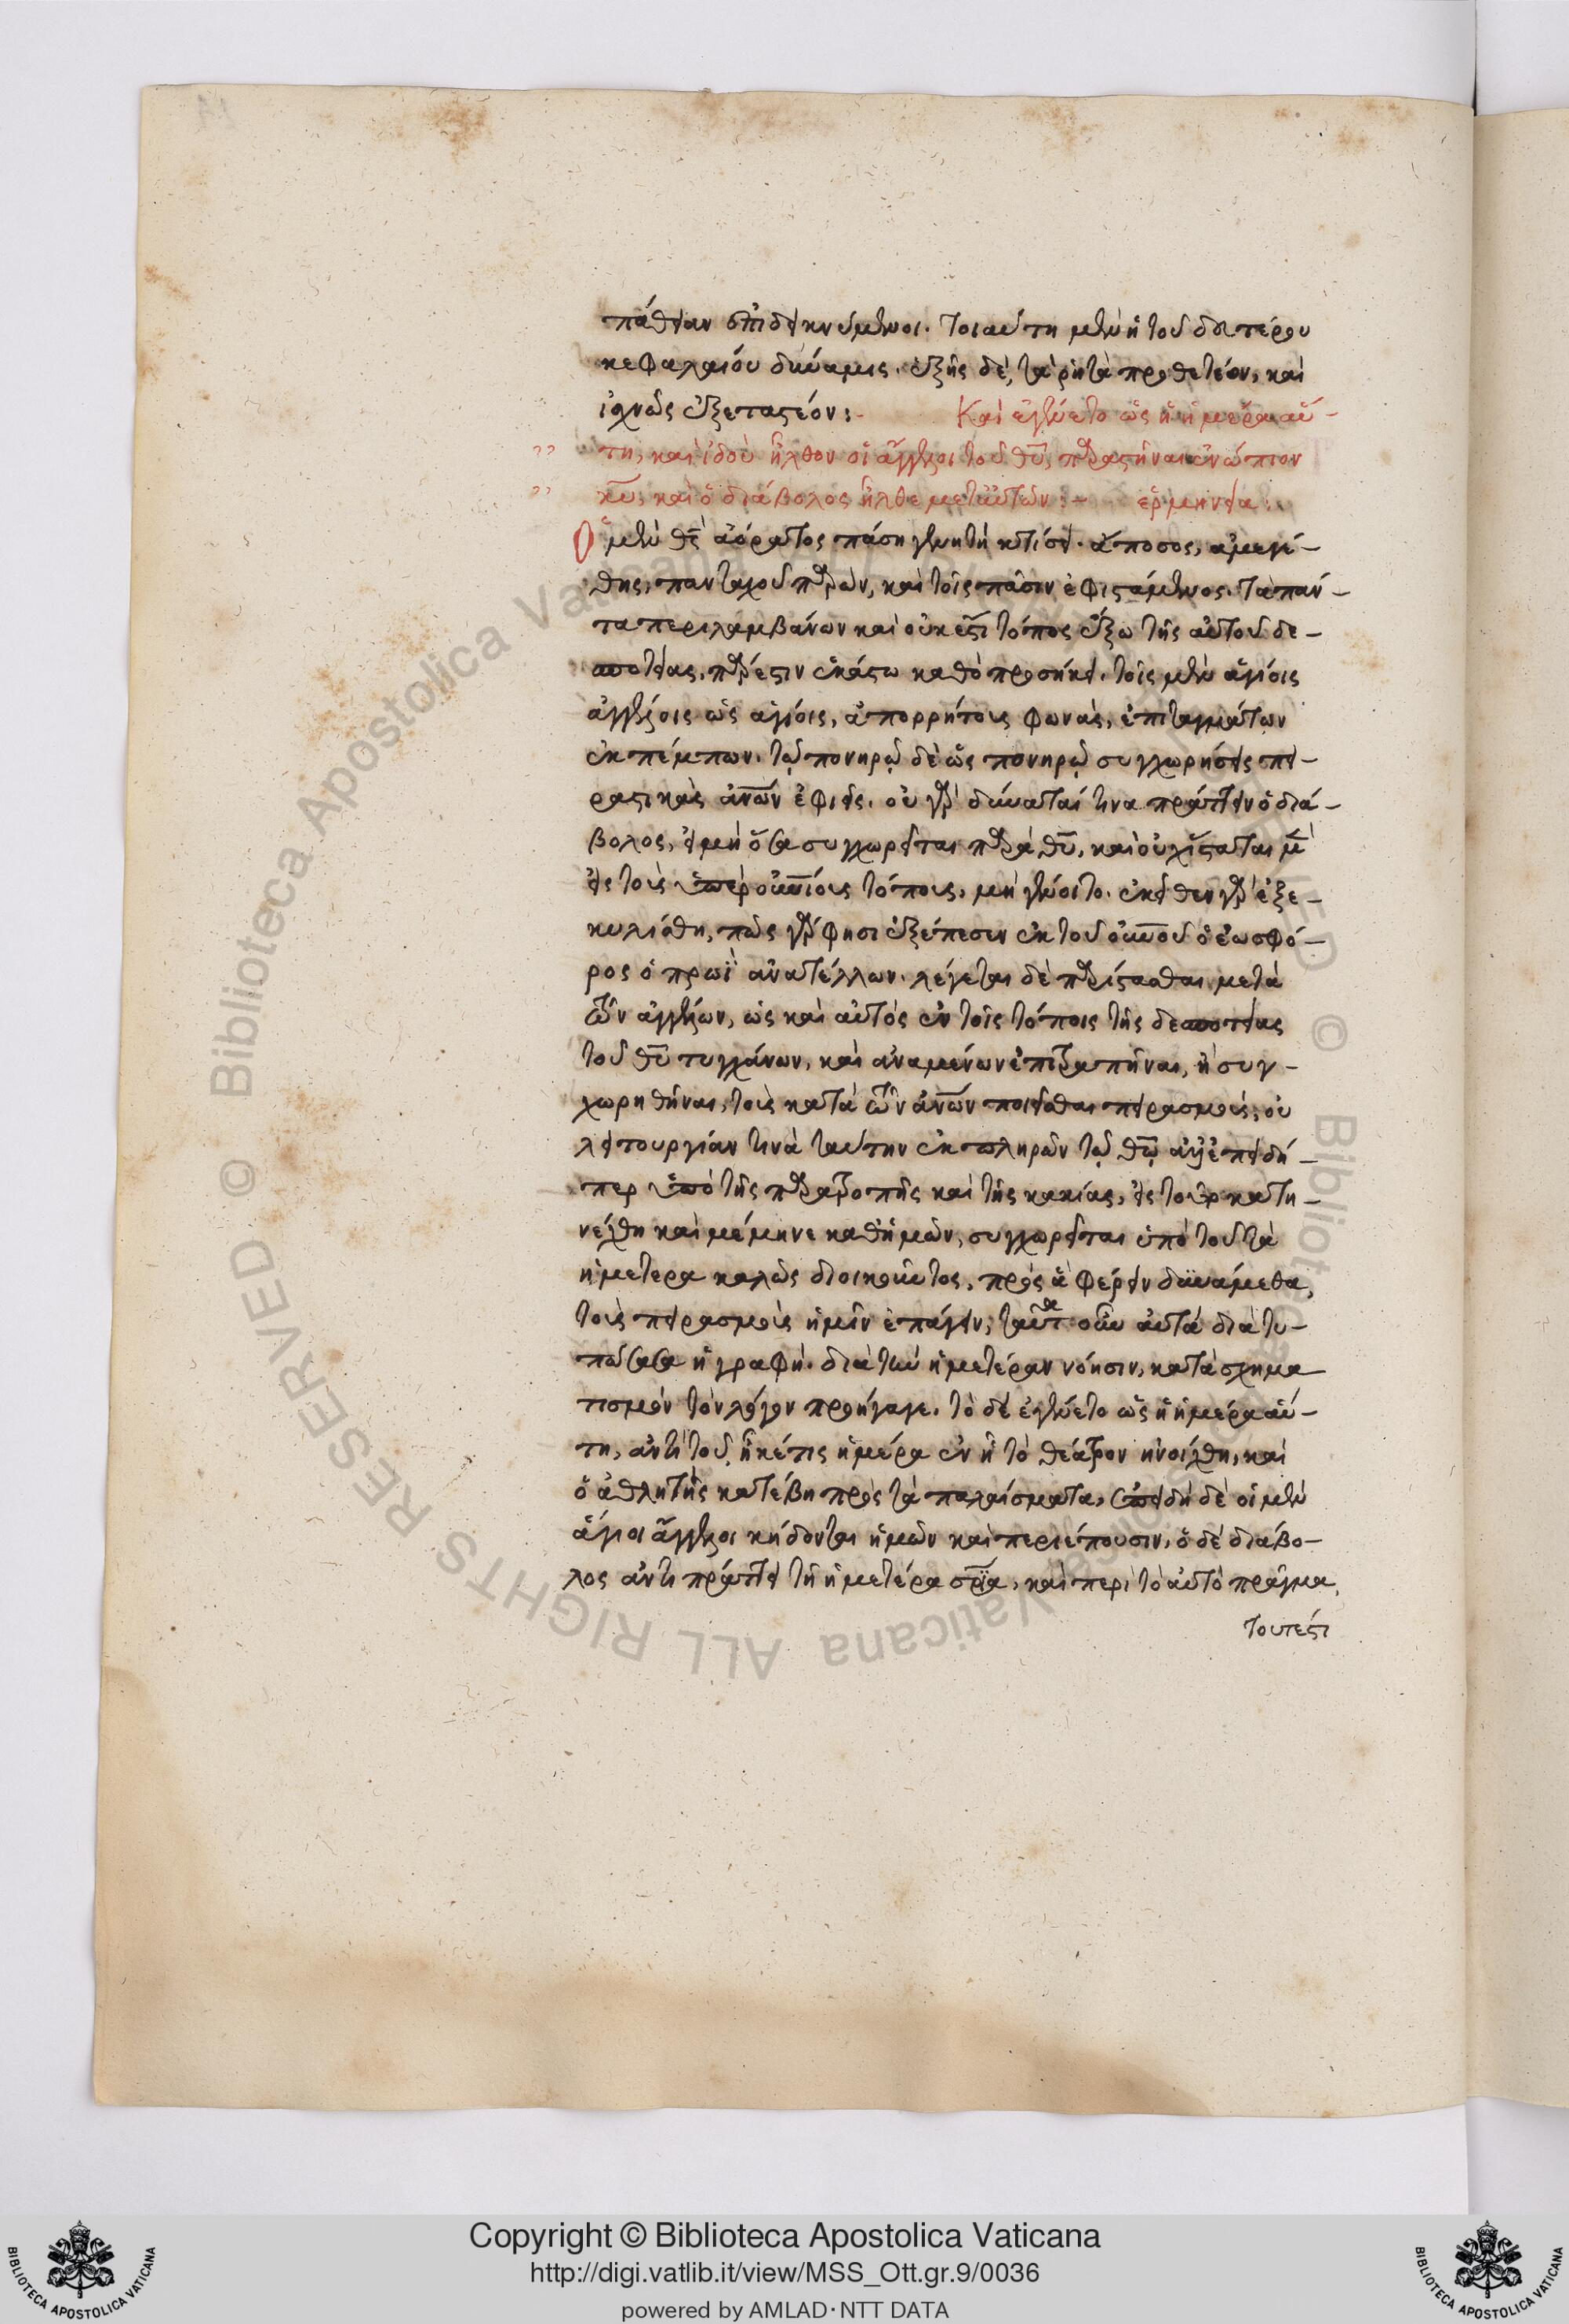 πάθειαν ἐπιδεικνύμενοι. Τοιαύτη μὲν ἡ τοῦ δευτέρου
κεφαλαίου δύναμις. ἑξῆς δὲ, τὰ ῥητὰ προθετέον, καὶ
ἰχνῶς ἐξεταστέον:- Καὶ ἐγένετο ὡς ἡ ἡμέρα αὕ-
τη, καὶ ἰδοὺ ἦλθον οἱ ἄγγελοι τοῦ θυ, παραστῆναι ἐνώπιον
κυ, καὶ ὁ διάβολος ἦλθε μετ' αὐτῶν:- ἑρμηνεία:
Ὁ μὲν θς ἀόρατος πάση γενητῆ κτίσει. ἄποσος, ἀμεγέ-
θης, πανταχοῦ παρὼν, καὶ τοῖς πᾶσιν ἐφιστάμενος. Τὰ πάν-
τα περιλαμβάνων καὶ οὐκ ἔστι τόπος ἔξω τῆς αὐτοῦ δε-
σποτείας, πάρεστιν ἑκάστω καθὸ προσήκει. τοῖς μὲν ἁγίοις
ἀγγέλοις ὡς ἁγίοις, ἀπορρήτους φωνὰς, ἐπιταγμάτων
ἐκπέμπων. τῷ πονηρῷ δὲ ὡς πονηρῷ συγχωρήσεις πει-
ραστικὰς ἀνων ἐφιεὶς. οὐ γὰρ δύναταί τινα πράττειν ὁ διά-
βολος, εἰ μὴ ὅσα συγχωρεῖται παρὰ θυ, καὶ οὐχ ἵσταται μὲν
εἰς τοὺς ὑπερουνίους τόπους, μὴ γένοιτο. ἐκεῖθεν γὰρ ἐξε-
κυλίσθη, πῶς γὰρ φησι ἐξέπεσεν ἐκ του οὐνου ὁ ἑωσφό-
ρος ὁ πρωῒ ἀνατέλλων. λέγεται δὲ παρίστασθαι μετὰ
τῶν ἀγγέλων, ὡς καὶ αὐτὸς ἐν τοῖς τόποις τῆς δεσποτείας
τοῦ θυ τυγχάνων, καὶ ἀναμένων ἐπιτραπῆναι, ἢ συγ-
χωρηθῆναι, τοὺς κατὰ τῶν ἀνων ποιεῖσθαι πειρασμούς, οὐ
λειτουργίαν τινὰ ταύτην ἐκπληρῶν τῷ θω ἀλλ' ἐπειδή-
περ ὑπὸ τῆς παρατροπῆς καὶ τῆς κακίας, εἰς τοῦτο κατη-
νέχθη καὶ μέμηνε καθ' ἡμῶν, συγχωρεῖται ὑπὸ τοῦ τὰ
ἡμέτερα καλῶς διοικοῦντος, πρὸς ἃ φέρειν δυνάμεθα,
τοὺς πειρασμοὺς ἡμῖν ἐπάγειν, ταῦτα οὖν αὐτὰ διατυ-
πώσασα ἡ γραφὴ. διὰ τὴν ἡμετέραν νόησιν, κατὰ σχημα
τισμὸν τὸν λόγον προήγαγε. τὸ δὲ ἐγένετο ὡς ἡ ἡμέρα αὕ-
τη, ἀντὶ τοῦ, ἧκέ τις ἡμέρα ἐν ᾗ τὸ θέατρον ἠνοίχθη, καὶ
ὁ ἀθλητὴς κατέβη πρὸς τὰ παλαίσματα, ἐπειδὴ δὲ οἱ μὲν
ἅγιοι ἄγγελοι κήδονται ἡμῶν καὶ περιέπουσιν, ὁ δὲ διάβο-
λος ἀντιπράττει τῇ ἡμετέρα σρια, καὶ περὶ τὸ αὐτὸ πρᾶγμα,
τουτέστι
Copyright © Biblioteca Apostolica Vaticana
http://digi.vatlib.it/view/MSS_Ott.gr.9/0036
powered by AMLAD·NTT DATA